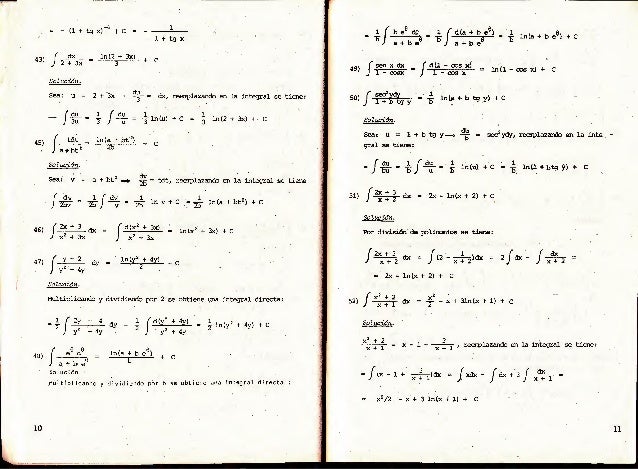 = - (1 + tg x)⁻¹ + C = - 1/(1 + tg x)
43) ∫ dx/(2 + 3x) = ln(2 + 3x)/3 + C
Solución.
Sea: u = 2 + 3x → du/3 = dx, reemplazando en la integral se tiene:
∫ du/3u = 1/3 ∫ du/u = 1/3 ln(u) + C = 1/3 ln(2 + 3x) + C
45) ∫ tdt/(a + bt²) = ln(a + bt²)/2b + C
Solución.
Sea: v = a + bt² → dv/2b = tdt, reemplazando en la integral se tiene
∫ dv/2bv = 1/2b ∫ dv/v = 1/2b ln v + C = 1/2b ln(a + bt²) + C
46) ∫ (2x + 3)/(x² + 3x) dx = ∫ d(x² + 3x)/(x² + 3x) = ln(x² + 3x) + C
47) ∫ (y - 2)/(y² - 4y) dy = ln(y² + 4y)/2 + C
Solución.
Multiplicando y dividiendo por 2 se obtiene una integral directa:
= 1/2 ∫ (2y - 4)/(y² - 4y) dy = 1/2 ∫ d(y² + 4y)/(y² + 4y) = 1/2 ln(y² + 4y) + C
48) ∫ e^θ dθ/(a + b e^θ) = ln(a + b e^θ)/b + C
Solución
multiplicando y dividiendo por b se obtiene una integral directa :
10
= 1/b ∫ b e^θ dθ/(a + b e^θ) = 1/b ∫ d(a + b e^θ)/(a + b e^θ) = 1/b ln(a + b e^θ) + C
49) ∫ sen x dx/(1 - cosx) = ∫ d(1 - cos x)/(1 - cos x) = ln(1 - cos x) + C
50) ∫ sec²ydy/(1 + b tg y) = 1/b ln(a + b tg y) + C
Solución.
Sea: u = 1 + b tg y → du/b = sec²ydy, reemplazando en la inte-
gral se tiene:
= ∫ du/bu = 1/b ∫ du/u = 1/b ln(u) + C = 1/b ln(1 + btg y) + C
51) ∫ (2x + 3)/(x + 2) dx = 2x - ln(x + 2) + C
Solución.
Por división de polinomios se tiene:
∫ (2x + 3)/(x + 2) dx = ∫ (2 - 1/(x + 2))dx = 2 ∫ dx - ∫ dx/(x + 2) =
= 2x - ln(x + 2) + C
52) ∫ (x² + 2)/(x + 1) dx = x²/2 - x + 3ln(x + 1) + C
Solución.
(x² + 2)/(x + 1) = x - 1 - 3/(x + 1), reemplazando en la integral se tiene:
= ∫ (x - 1 + 3/(x + 1))dx = ∫ xdx - ∫ dx + 3 ∫ dx/(x + 1) =
= x²/2 - x + 3 ln(x + 1) + C
11